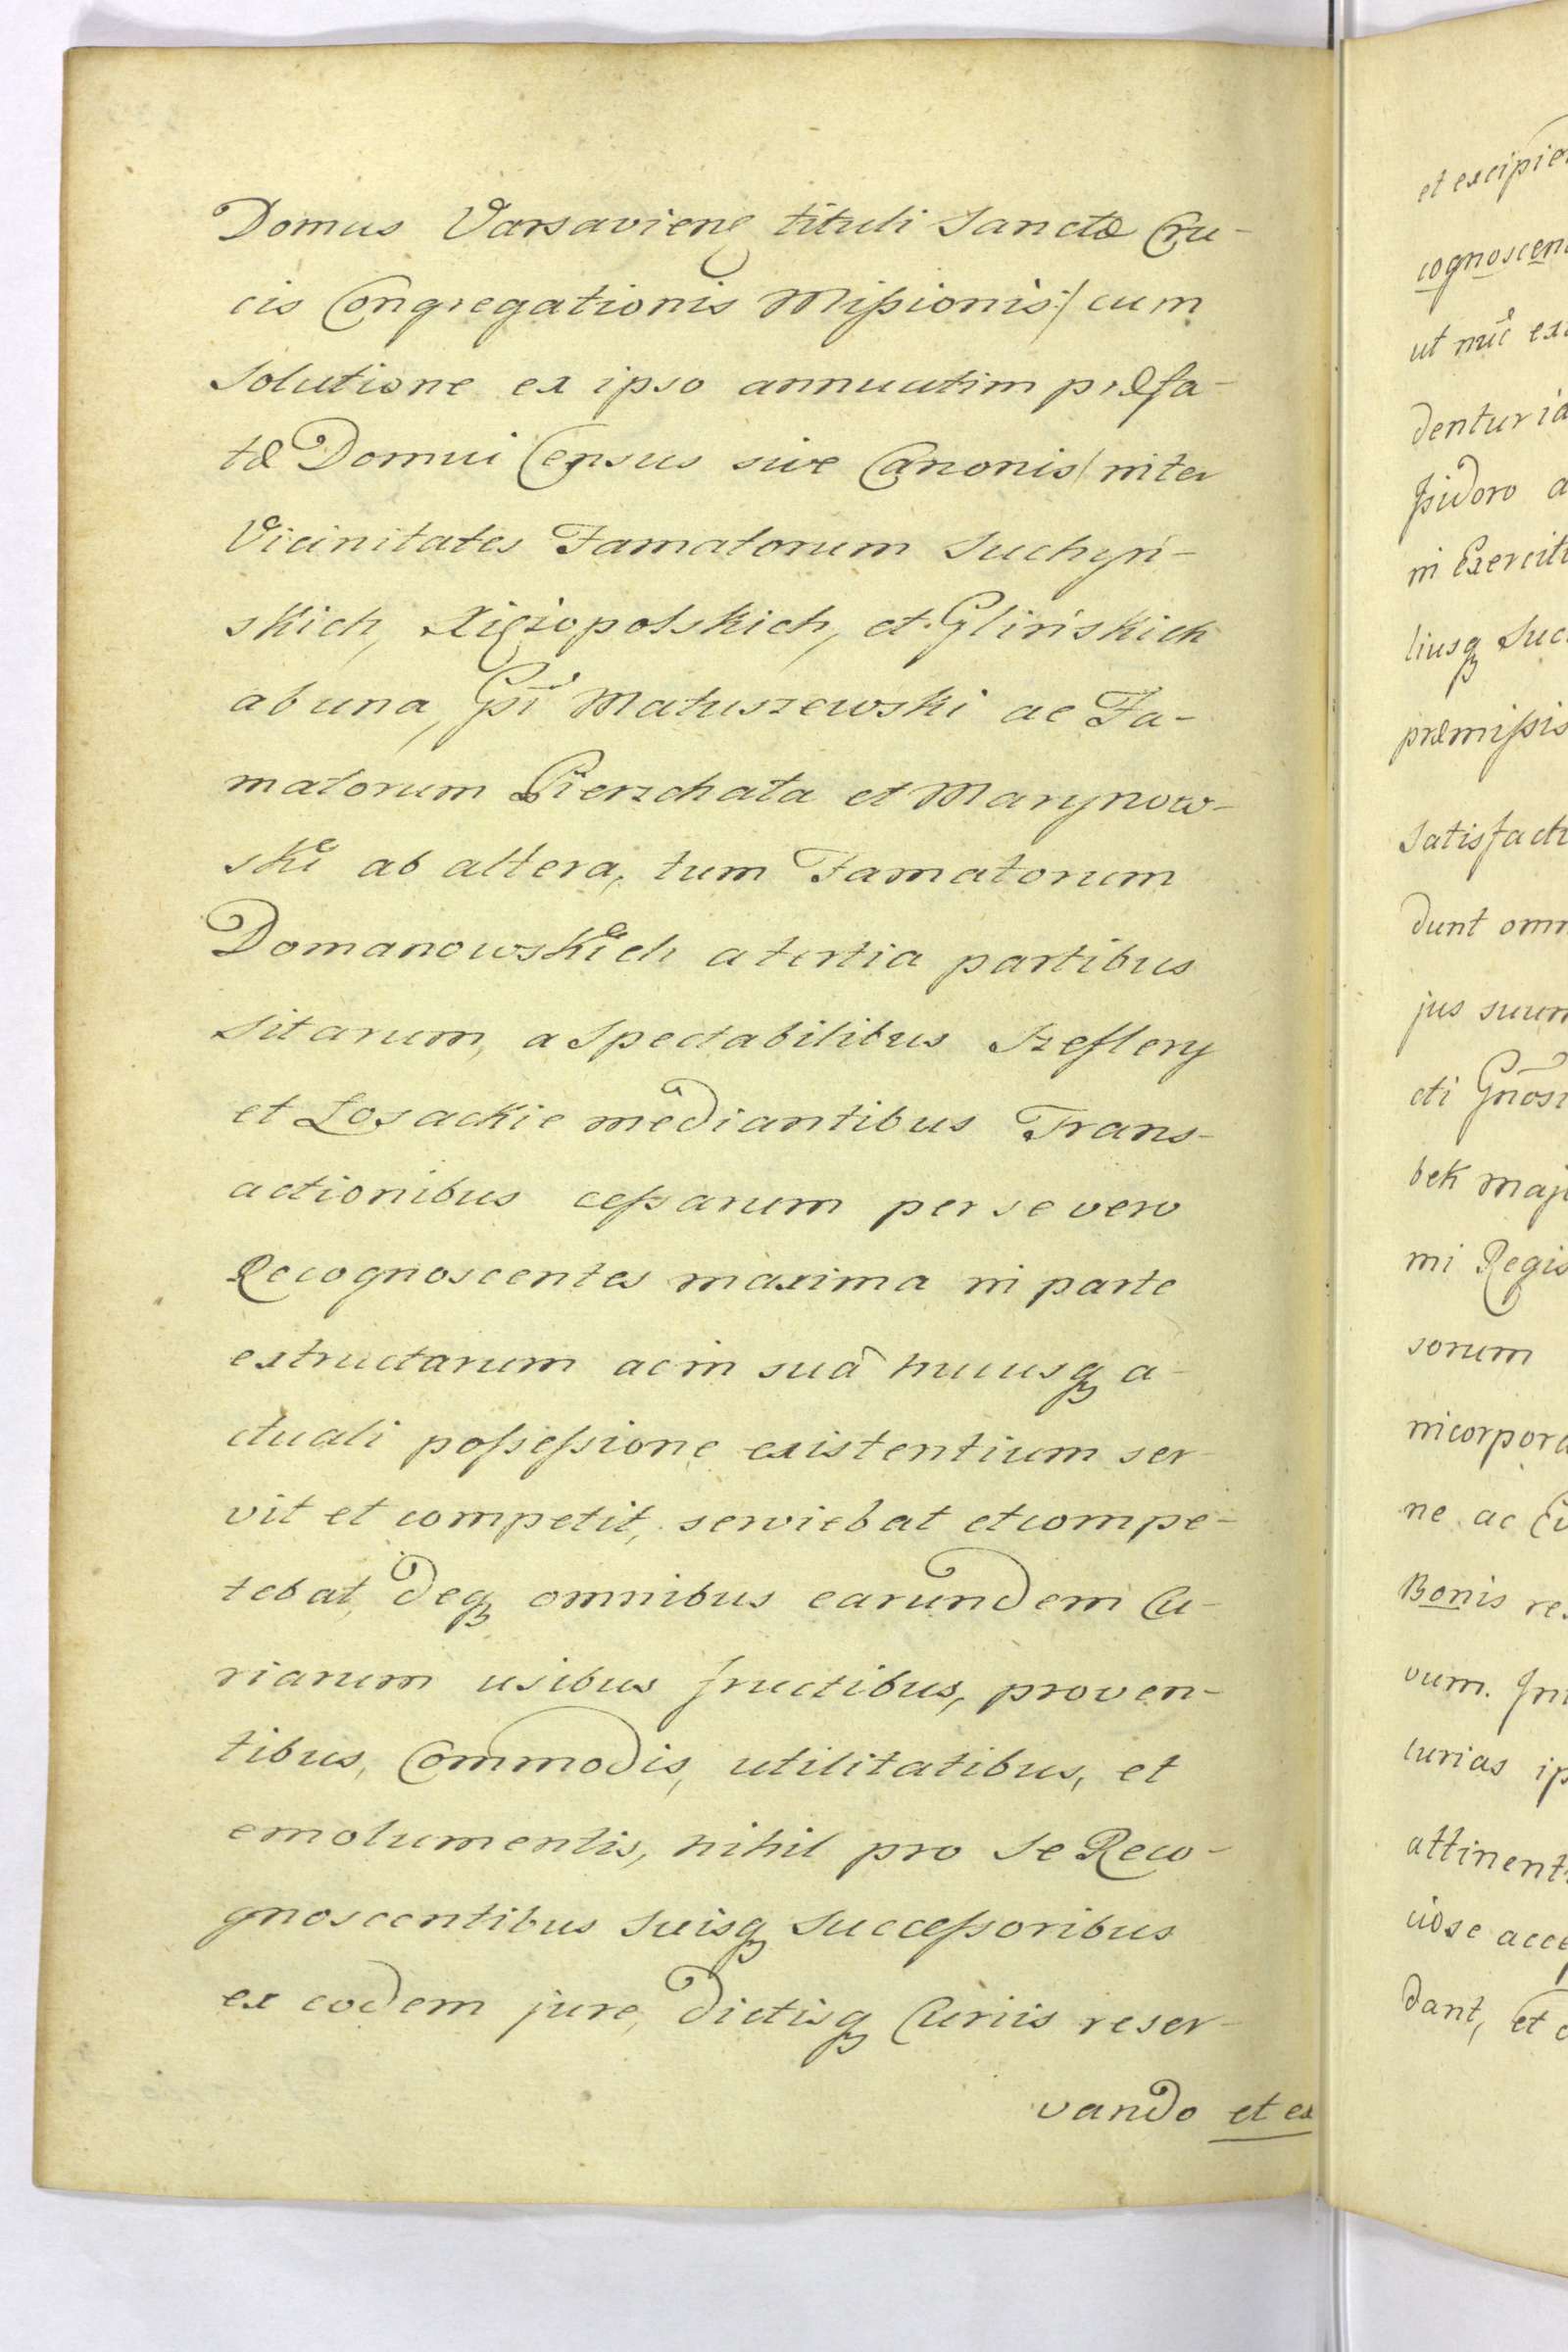 Domus Varsavieng tituli Sanctæ Cru-
cis Congregationis Mißionis:/ cum
Solutione ex ipso annuatim præfa-
tæ Domui Census sive Canonis/ inter
Vicinitates Famatorum Suchyń-
skich, Xięzopolskich, et Glińskich
ab una, Matuszewski ac Fa-
matorum Pierzchała et Marynow-
ski ab altera, tum Famatorum
Domanowskich a tertia partibus
Sitarum, a Spectabilibus Szeflery
et Losackie mediantibus Trans-
actionibus ceßarum per se vero
Recognoscentes maxima in parte
extructarum ac in suâ hucusq a-
ctuali poßeßione existentium ser-
vit et competit, serviebat et compe-
tebat, deq omnibus earundem Cu-
riarum usibus fructibus, proven-
tibus, Commodis, utilitatibus, et
emolumentis, nihil pro se Reco-
gnoscentibus Suisq Succeßoribus
ex eodem jure, dictisq Curiis reser-
vando et ex
et excipie
cognoscen
ut
dentur
Isidoro a
in Exercit
liusq Suc
præmißis
Satisfact
dunt omn
jus suum
cti
bek Maj
mi Regis
sorum
incorpora
ne ac
Bonis re
vum.
curias ip
attinent
ciose acce
dant, et